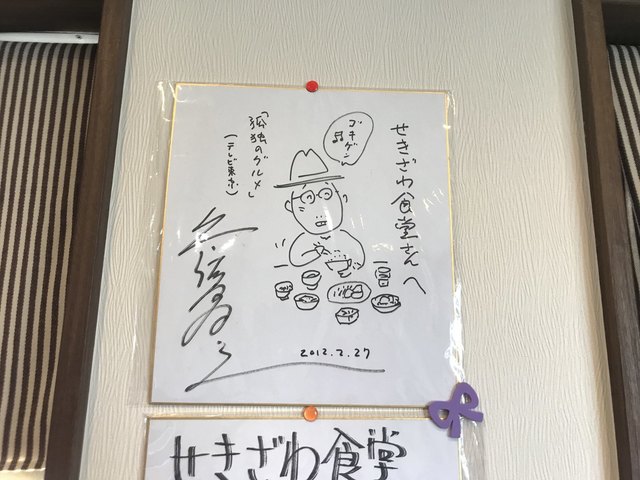 せきざわ食堂さんへ
ゴキゲン
「孤独のグルメ」
(テレビ東京)
2012.2.27
せきざわ食堂